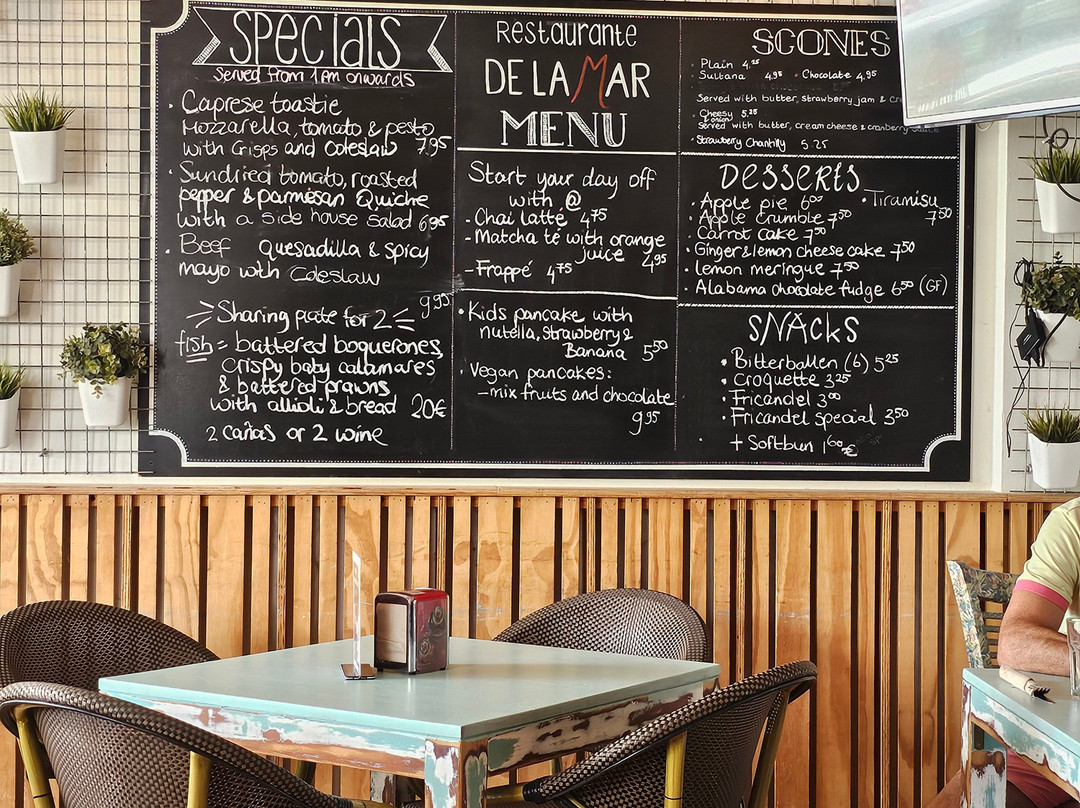 Specials
Served from 1pm onwards
· Caprese toastie
Mozzarella, tomato & pesto
with Crisps and Coleslaw 7,95
· Sundried tomato, roasted
pepper & parmesan Quiche
with a side house salad 6,95
· Beef quesadilla & spicy
mayo with Coleslaw
9,95
Sharing plate for 2
fish = battered boquerones,
crispy baby calamares
& battered prawns
with allioli & bread 20€
2 cañas or 2 wine
Restaurante
DE LA MAR
MENU
Start your day off
with @
- Chai latte 4,75
- Matcha té with orange
juice 4,95
- Frappé 4,75
· Kids pancake with
nutella, strawberry &
Banana 5,50
· Vegan pancakes:
- mix fruits and chocolate
9,95
SCONES
· Plain 4,25
· Sultana 4,95 · Chocolate 4,95
Served with butter, strawberry jam &
· Cheesy 5,25
& onion
Served with butter, cream cheese & cranberry sauce
· Strawberry Chantilly 5,25
Desserts
· Apple pie 6,00 · Tiramisu
· Apple Crumble 7,50 7,50
· Carrot cake 7,50
· Ginger & lemon cheese cake 7,50
· Lemon meringue 7,50
· Alabama chocolate fudge 6,50 (GF)
SNACKS
· Bitterballen (6) 5,25
· Croquette 3,25
· Fricandel 3,00
· Fricandel Special 3,50
+ Softbun 1,60€